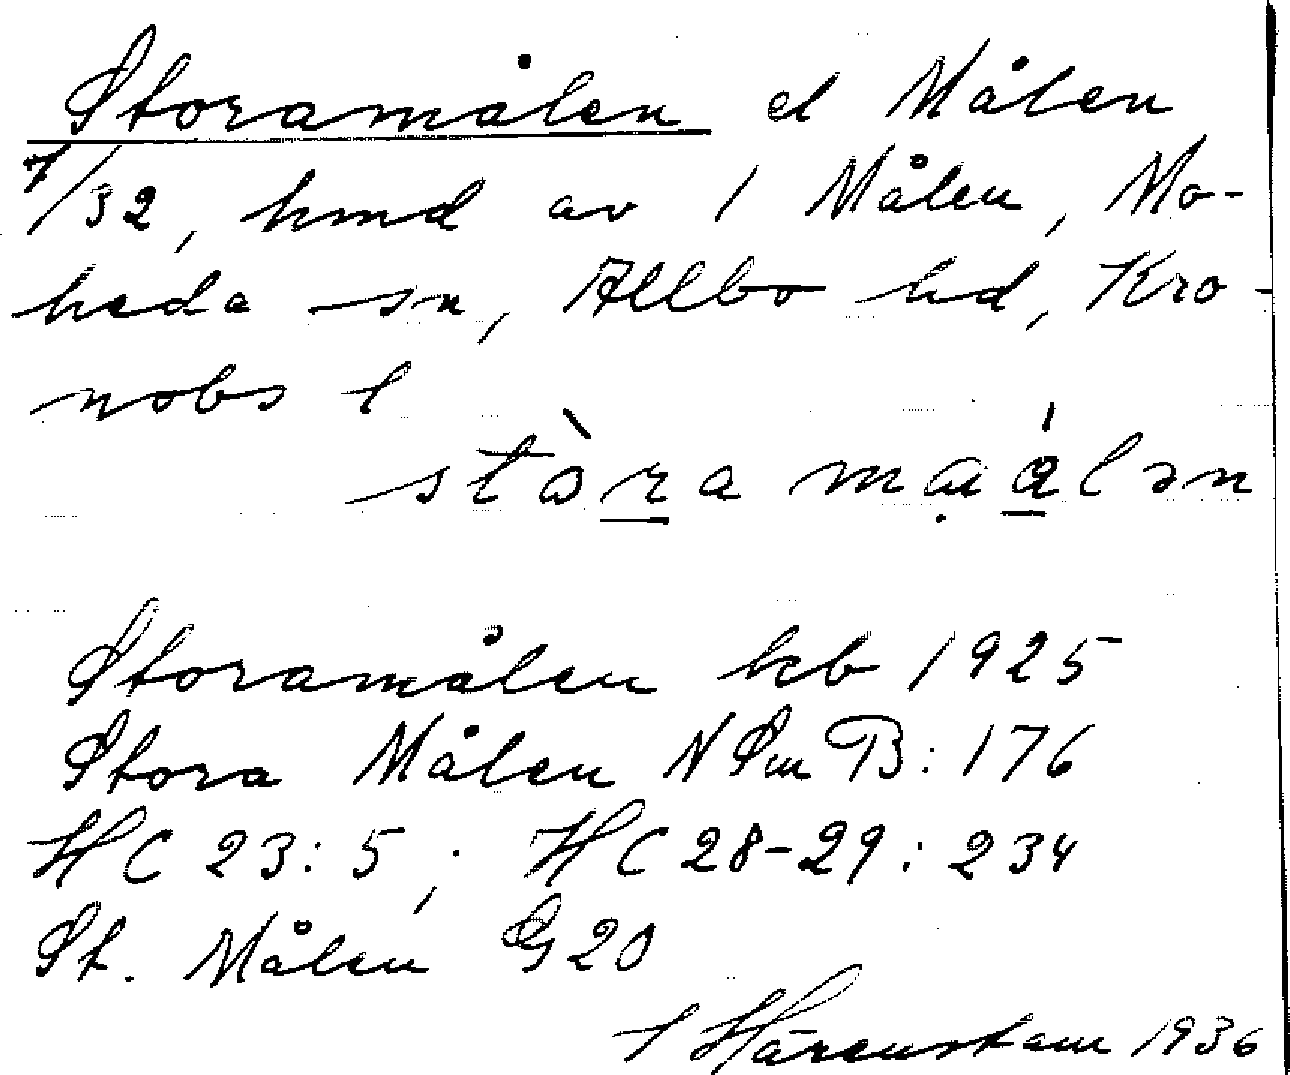 Storamålen el Målen
7/32, hmd av 1 Målen, Mo-
heda sn, Allbo hd, Kro-
nobs l
stòra maálən
Storamålen kb 1925
Stora Målen N Sm B: 176
HC 23:5; HC 28-29: 234
St. Målen G 20
I Härenstam 1936